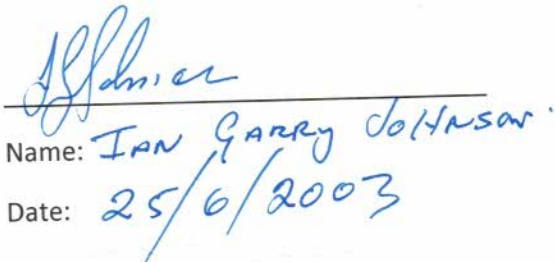 Name: IAN GARRY JOHNSON.
Date: 25/6/2003